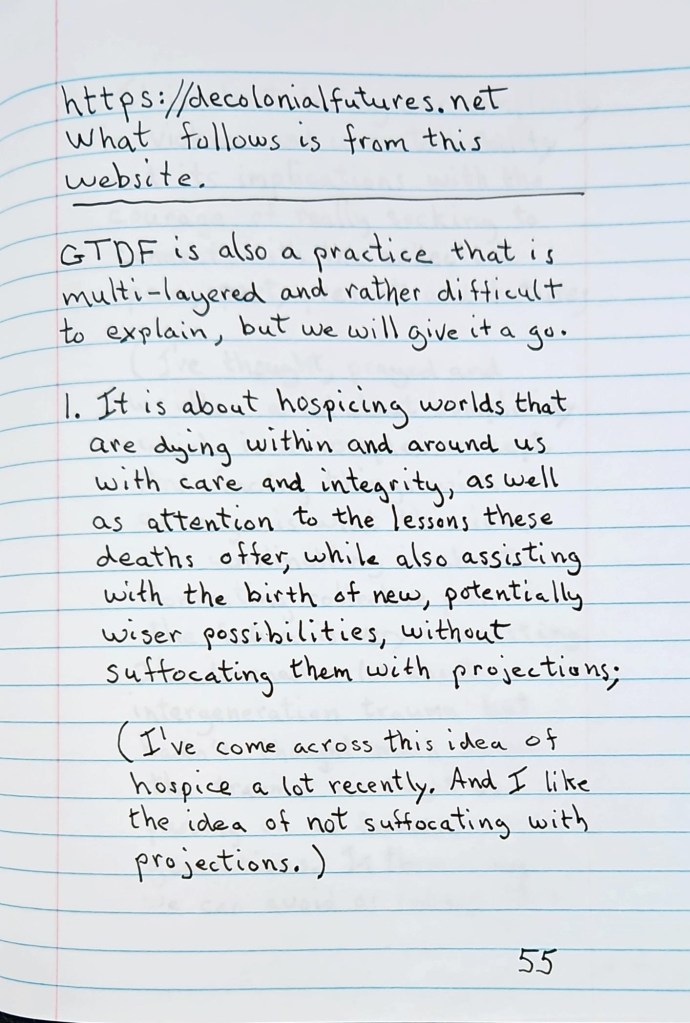 https://decolonialfutures.net
What follows is from this
website.
GTDF is also a practice that is
multi-layered and rather difficult
to explain, but we will give it a go.
1. It is about hospicing worlds that
are dying within and around us
with care and integrity, as well
as attention to the lessons these
deaths offer, while also assisting
with the birth of new, potentially
wiser possibilities, without
suffocating them with projections;
(I've come across this idea of
hospice a lot recently. And I like
the idea of not suffocating with
projections.)
55